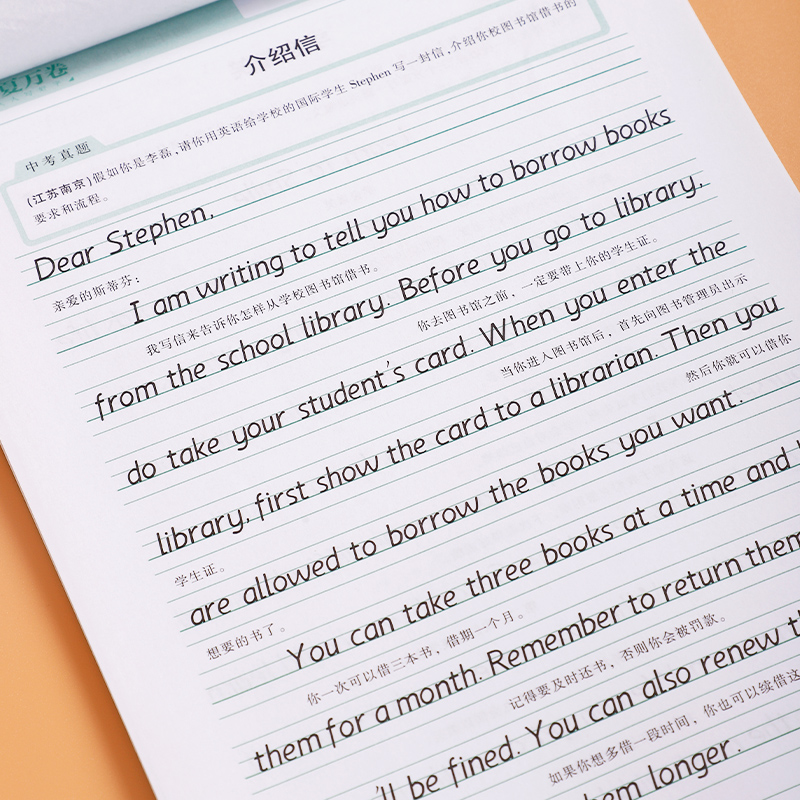 夏万卷
介绍信
中考真题
(江苏南京)假如你是李磊,请你用英语给学校的国际学生 Stephen 写一封信,介绍你校图书馆借书的
要求和流程。
Dear Stephen,
亲爱的斯蒂芬:
I am writing to tell you how to borrow books
我写信来告诉你怎样从学校图书馆借书。
from the school library. Before you go to library,
你去图书馆之前,一定要带上你的学生证。
do take your student's card. When you enter the
当你进入图书馆后,首先向图书管理员出示
library, first show the card to a librarian. Then you
学生证。
然后你就可以借你
are allowed to borrow the books you want.
想要的书了。
You can take three books at a time and
你一次可以借三本书,借期一个月。
them for a month. Remember to return them
记得要及时还书,否则你会被罚款。
'll be fined. You can also renew
如果你想多借一段时间,你也可以续借这
longer.